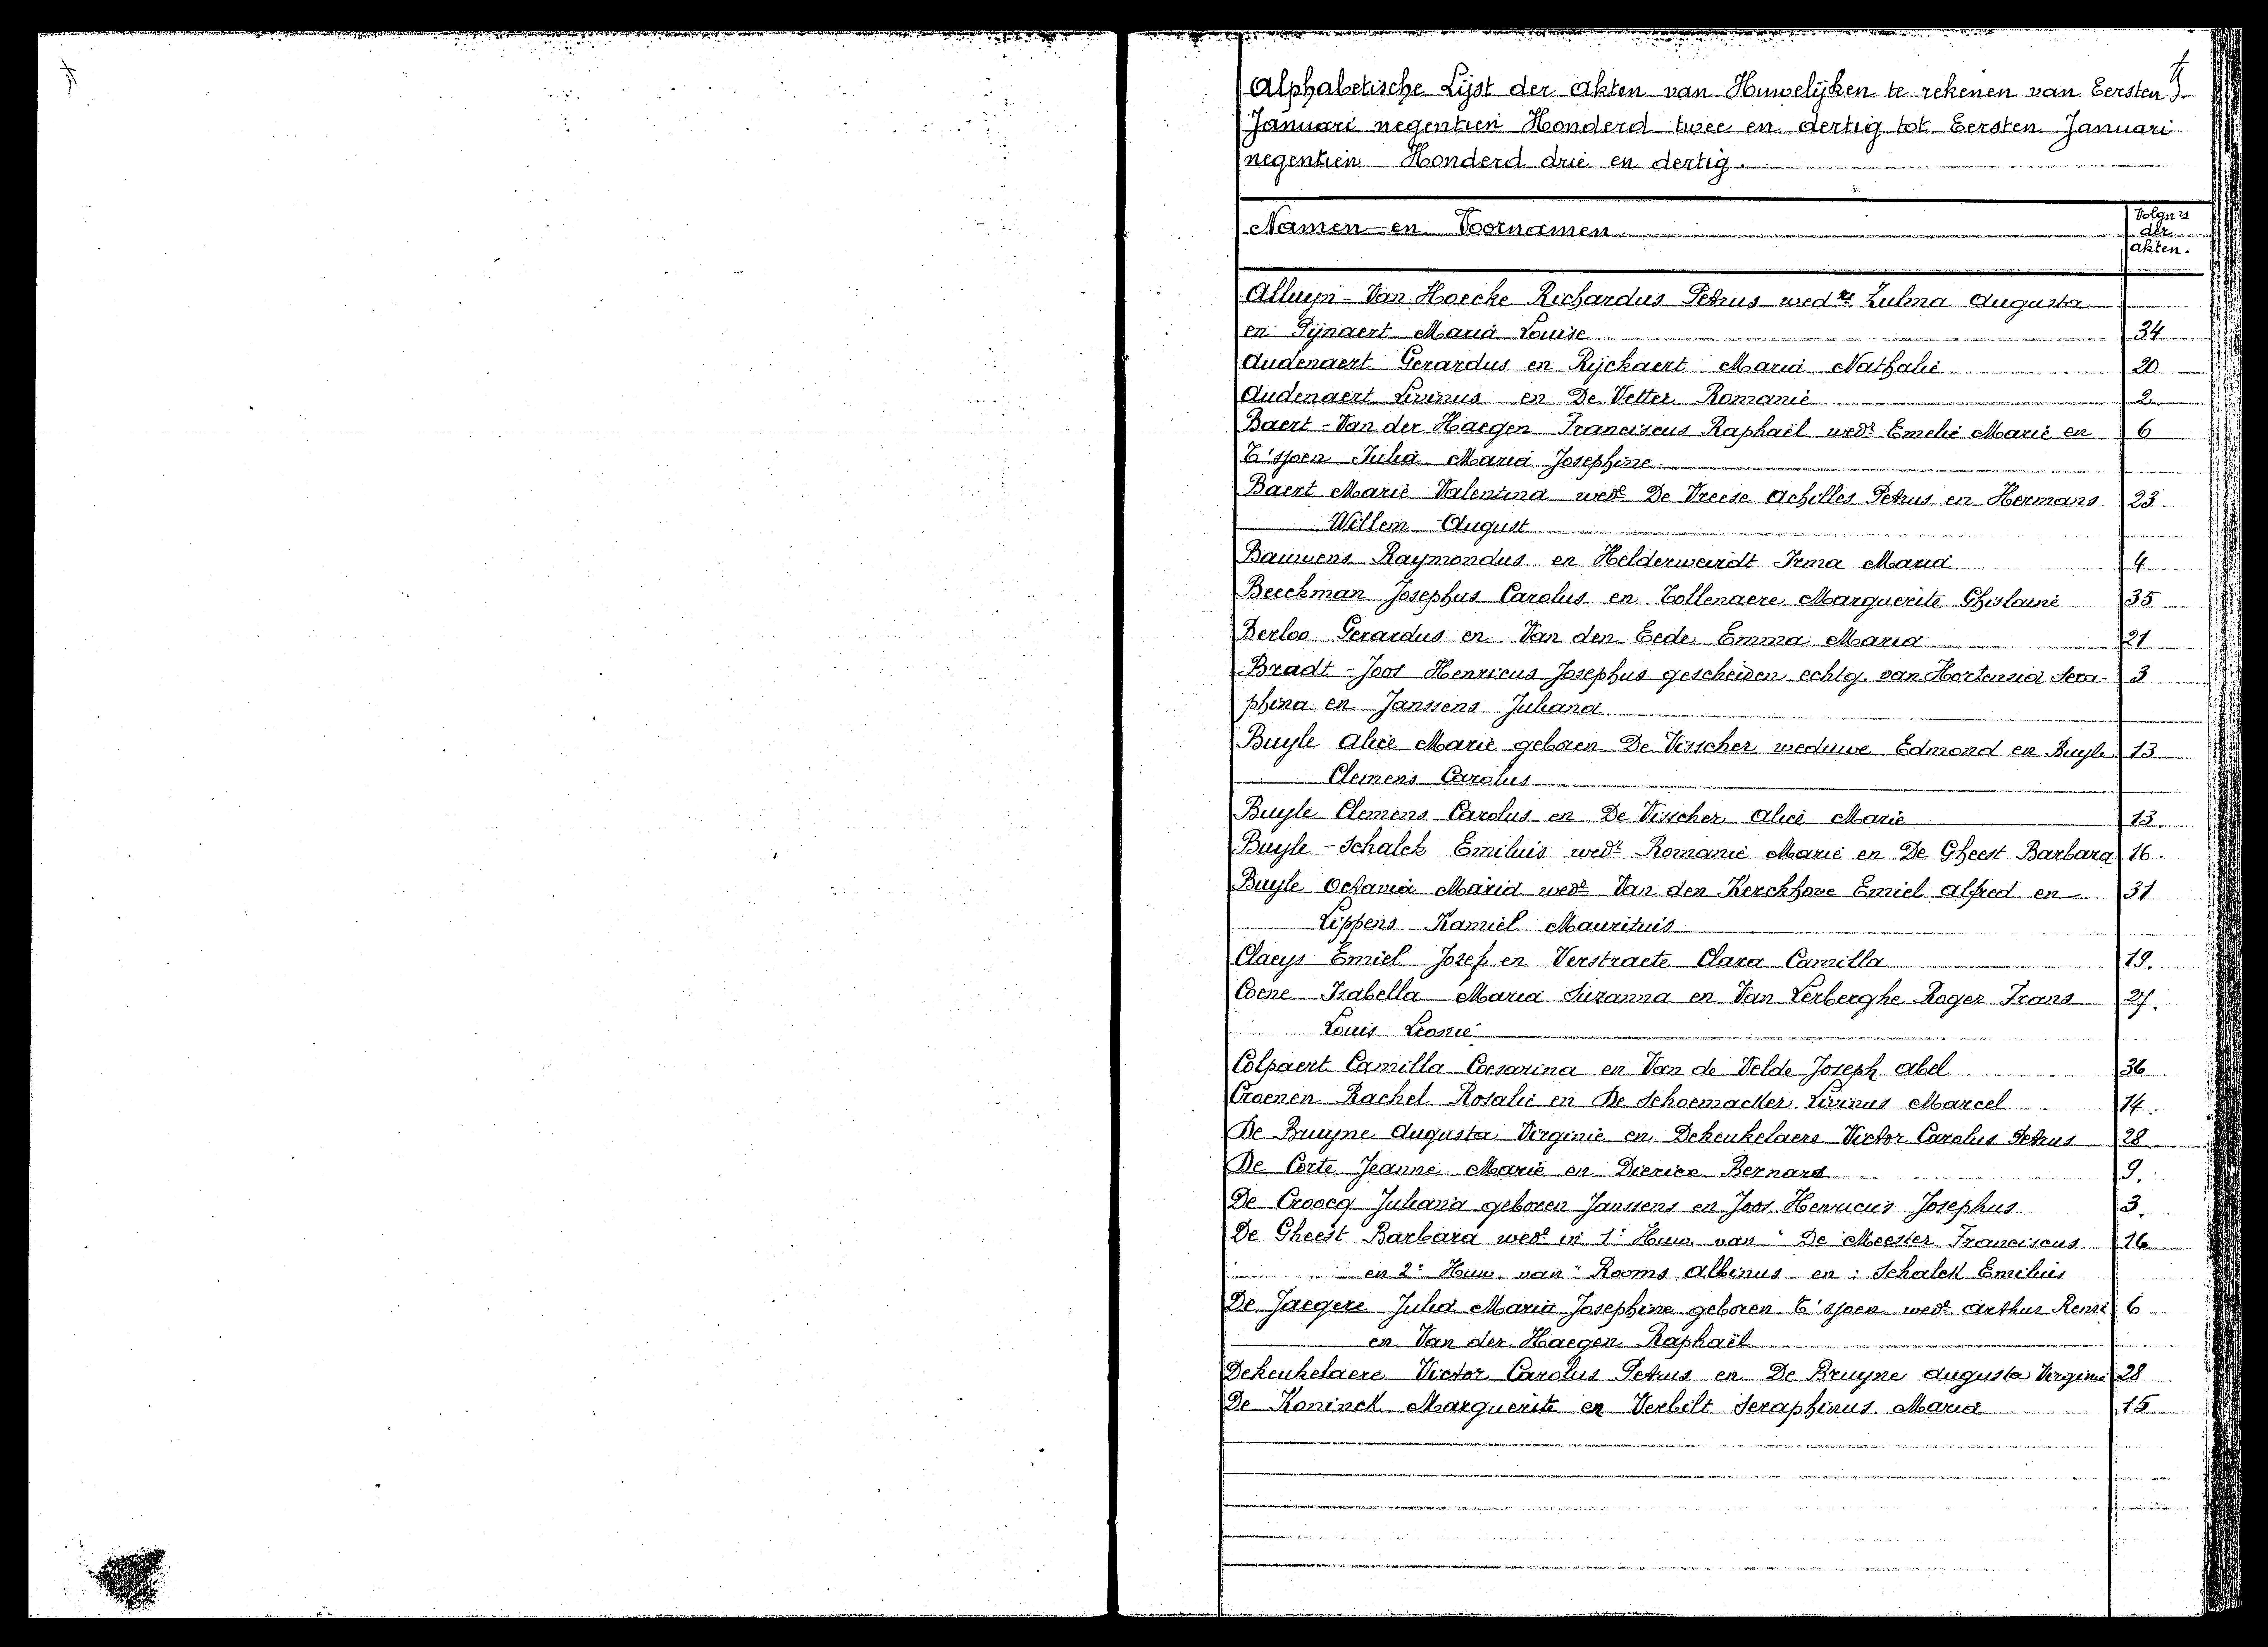 Alphabetische Lijst der akten van Huwelijken te rekenen van Eersten
Januari negentien Honderd twee en dertig tot Eersten Januari
negentien Honderd drie en dertig.
Namen en Voornamen
Volgnrs
der
akten.
Alluyn - Van Hoecke Richardus Petrus wedr Zulma Augusta
en Pijnaert Maria Louise 34
Audenaert Gerardus en Rijckaert Maria Nathalie 20
Audenaert Livinus en De Vetter Romanie 2
Baert - Van der Haegen Franciscus Raphaël wedr Emelie Marie en 6
T'sjoen Julia Maria Josephine
Baert Marie Valentina wede De Vreese Achilles Petrus en Hermans 23
Willem August
Bauwens Raymondus en Helderweirdt Irma Maria 4
Beeckman Josephus Carolus en Tollenaere Marguerite Ghislaine 35
Berloo Gerardus en Van den Eede Emma Maria 21
Bradt - Joos Henricus Josephus gescheiden echtg. van Hortensia Sera- 3
phina en Janssens Juliana
Buyle Alice Marie geboren De Visscher weduwe Edmond en Buyle 13
Clemens Carolus
Buyle Clemens Carolus en De Visscher Alice Marie 13
Buyle - Schalck Emilius wedr Romanie Marie en De Gheest Barbara 16.
Buyle Octavia Maria wede Van den Kerckhove Emiel Alfred en 31
Lippens Kamiel Mauritius
Claeys Emiel Jozef en Verstraete Clara Camilla 19.
Coene Isabella Maria Suzanna en Van Lerberghe Roger Frans 27.
Louis Leonie
Colpaert Camilla Coesarina en Van de Velde Joseph Abel 36
Croenen Rachel Rosalie en De Schoemacker Livinus Marcel 14.
De Bruyne Augusta Virginie en Dekeukelaere Victor Carolus Petrus 28
De Corte Jeanne Marie en Dierick Bernard 9.
De Croocq Juliana geboren Janssens en Joos Henricus Josephus 3.
De Gheest Barbara wede in 1e Huw. van De Meester Franciscus 16
en 2e Huw. van Rooms Albinus en Schalck Emilius
De Jaegere Julia Maria Josephine geboren T'sjoen wede Arthur Remi 6
en Van der Haegen Raphaël
Dekeukelaere Victor Carolus Petrus en De Bruyne Augusta Virginie 28
De Koninck Marguerite en Verbilt Seraphinus Maria 15